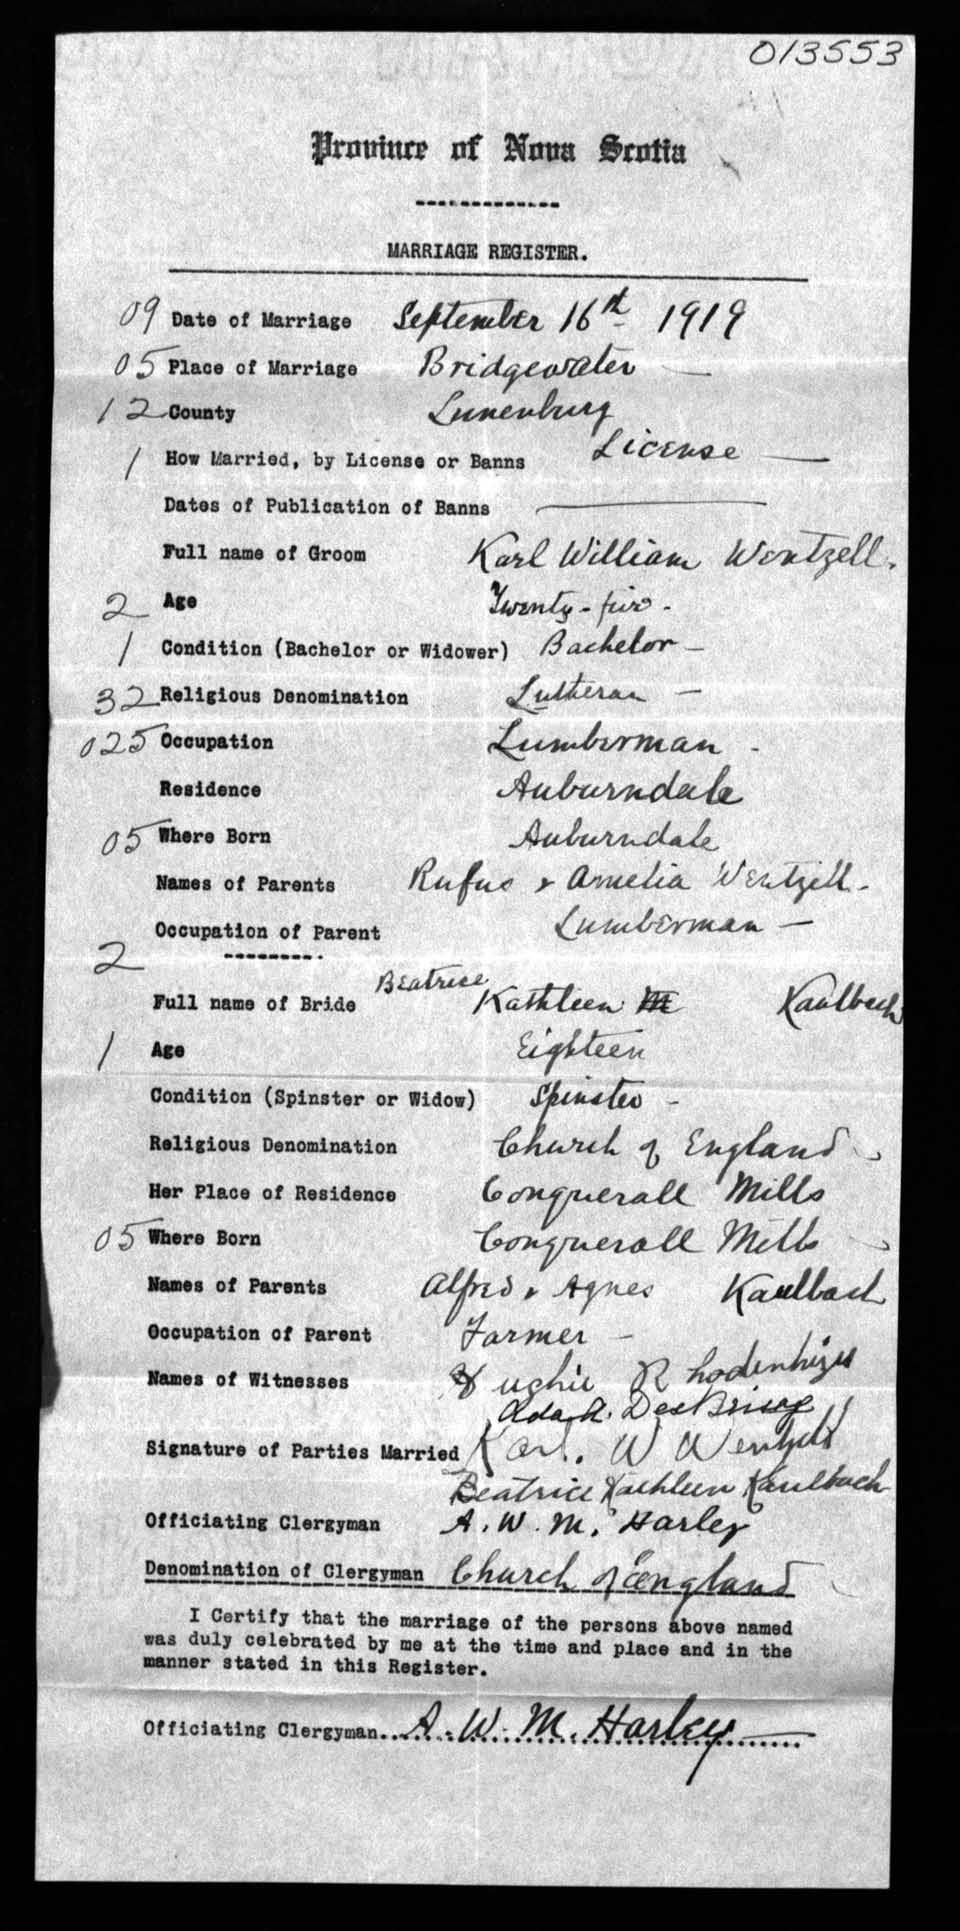 013553
Province of Nova Scotia
MARRIAGE REGISTER.
09 Date of Marriage September 16th 1919
05 Place of Marriage Bridgewater
12 County Lunenburg
1 How Married, by License or Banns License
Dates of Publication of Banns
Full name of Groom Karl William Wentzell.
2 Age Twenty-five.
1 Condition (Bachelor or Widower) Bachelor
32 Religious Denomination Lutheran
025 Occupation Lumberman
Residence Auburndale
05 Where Born Auburndale
Names of Parents Rufus & Amelia Wentzell.
Occupation of Parent Lumberman
2
Beatrice
Full name of Bride Kathleen M Kaulbach
1 Age Eighteen
Condition (Spinster or Widow) Spinster
Religious Denomination Church of England
Her Place of Residence Conquerall Mills
05 Where Born Conquerall Mills
Names of Parents Alfred & Agnes Kaulbach
Occupation of Parent Farmer
Names of Witnesses Hughie Rhodenhizer
Ada A. DesBrisay
Signature of Parties Married Karl. W Wentzell
Beatrice Kathleen Kaulbach
Officiating Clergyman A. W. M. Harley
Denomination of Clergyman Church of England
I Certify that the marriage of the persons above named
was duly celebrated by me at the time and place and in the
manner stated in this Register.
Officiating Clergyman A. W. M. Harley